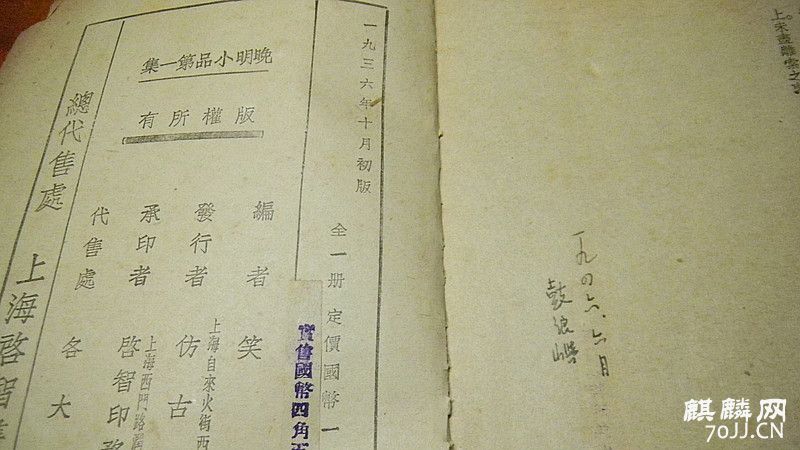 上。未盡雖
一九四六、六月
鼓浪嶼
一九三六年十月初版
全一册 定價國幣一
實售國幣四角五
晚明小品第一集
版權所有
編者 笑
發行者 仿古
上海自來火街西
承印者 啓智印務
上海西門路
代售處 各大
總代售處 上海啓智
麒麟网
70JJ.CN